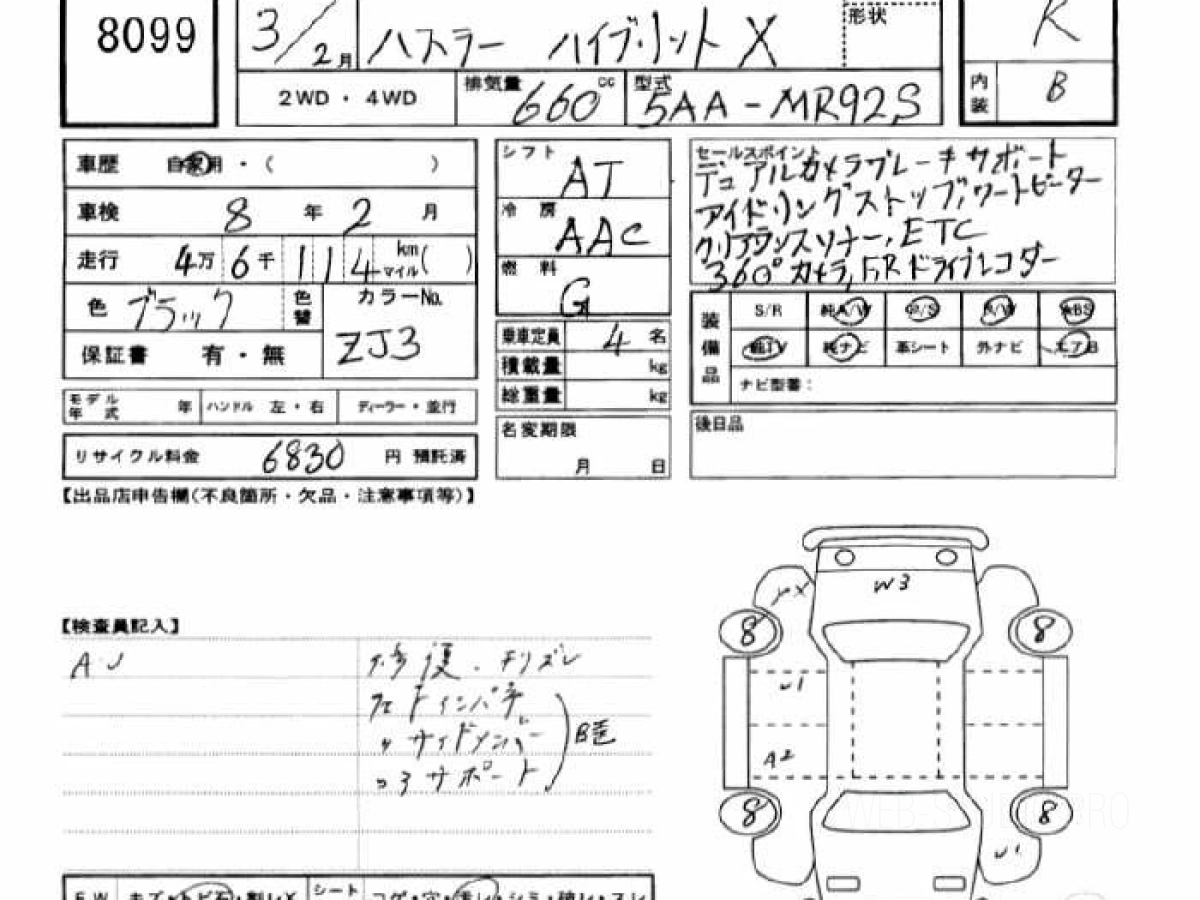 8099
3/2月 ハスラー ハイブリット X 形状 R
2WD・4WD 排気量 660 cc 型式 5AA-MR92S 内装 B
車歴 自家用・( )
車検 8 年 2 月
走行 4万6千114 km マイル( )
色 ブラック 色替 カラーNo. ZJ3
保証書 有・無
モデル年式 年 ハンドル 左・右 ディーラー・並行
リサイクル料金 6830 円 預託済
シフト AT
冷房 AAC
燃料 G
乗車定員 4 名
積載量 kg
総重量 kg
名変期限
月 日
セールスポイント
デュアルカメラブレーキサポート
アイドリングストップ,シートヒーター
クリアランスソナー,ETC
360°カメラ,FRドライブレコダー
装備品
S/R 純A/W P/S P/W ABS
純TV 純ナビ 革シート 外ナビ エアB
ナビ型番:
後日品
【出品店申告欄(不良箇所・欠品・注意事項等)】
【検査員記入】
AU
修復.
インパネ
〃 サイドメンバー
サポート
W3
8 8
U1
A2
8 8
F.W キズ・トビ石・割レX シート コゲ・穴・汚レ・シミ・破レ・スレ